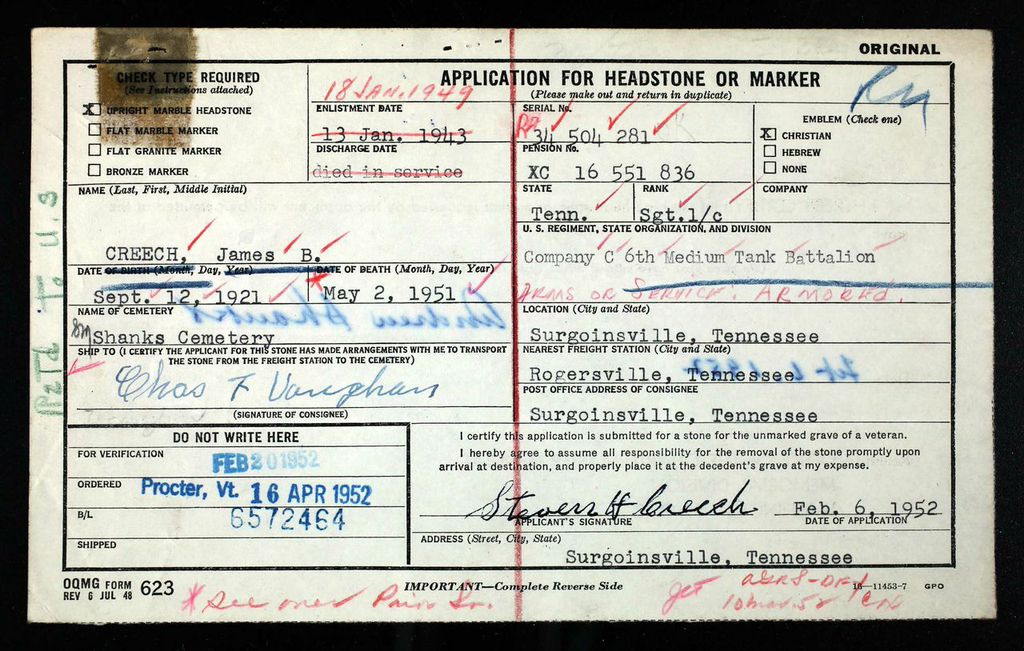 ORIGINAL
CHECK TYPE REQUIRED
(See Instructions attached)
X UPRIGHT MARBLE HEADSTONE
FLAT MARBLE MARKER
FLAT GRANITE MARKER
BRONZE MARKER
18 JAN. 1949
ENLISTMENT DATE
13 Jan. 1943
DISCHARGE DATE
died in service
APPLICATION FOR HEADSTONE OR MARKER
(Please make out and return in duplicate)
SERIAL No.
34 504 281
PENSION No.
XC 16 551 836
EMBLEM (Check one)
X CHRISTIAN
HEBREW
NONE
NAME (Last, First, Middle Initial)
CREECH, James B.
STATE
Tenn.
RANK
Sgt.1/c
COMPANY
U. S. REGIMENT, STATE ORGANIZATION, AND DIVISION
Company C 6th Medium Tank Battalion
ARMS OR SERVICE: ARMORED.
DATE OF BIRTH (Month, Day, Year)
Sept. 12, 1921
DATE OF DEATH (Month, Day, Year)
May 2, 1951
NAME OF CEMETERY
Shanks Cemetery
LOCATION (City and State)
Surgoinsville, Tennessee
SHIP TO (I CERTIFY THE APPLICANT FOR THIS STONE HAS MADE ARRANGEMENTS WITH ME TO TRANSPORT
THE STONE FROM THE FREIGHT STATION TO THE CEMETERY)
Chas F Vaughan
(SIGNATURE OF CONSIGNEE)
NEAREST FREIGHT STATION (City and State)
Rogersville, Tennessee
POST OFFICE ADDRESS OF CONSIGNEE
Surgoinsville, Tennessee
DO NOT WRITE HERE
FOR VERIFICATION
FEB 20 1952
ORDERED
Procter, Vt. 16 APR 1952
B/L
6572464
SHIPPED
I certify this application is submitted for a stone for the unmarked grave of a veteran.
I hereby agree to assume all responsibility for the removal of the stone promptly upon
arrival at destination, and properly place it at the decedent's grave at my expense.
Steven H Creech
APPLICANT'S SIGNATURE
Feb. 6, 1952
DATE OF APPLICATION
ADDRESS (Street, City, State)
Surgoinsville, Tennessee
OQMG FORM
REV 6 JUL 48 623
IMPORTANT—Complete Reverse Side
16—11453-7 GPO
* See over